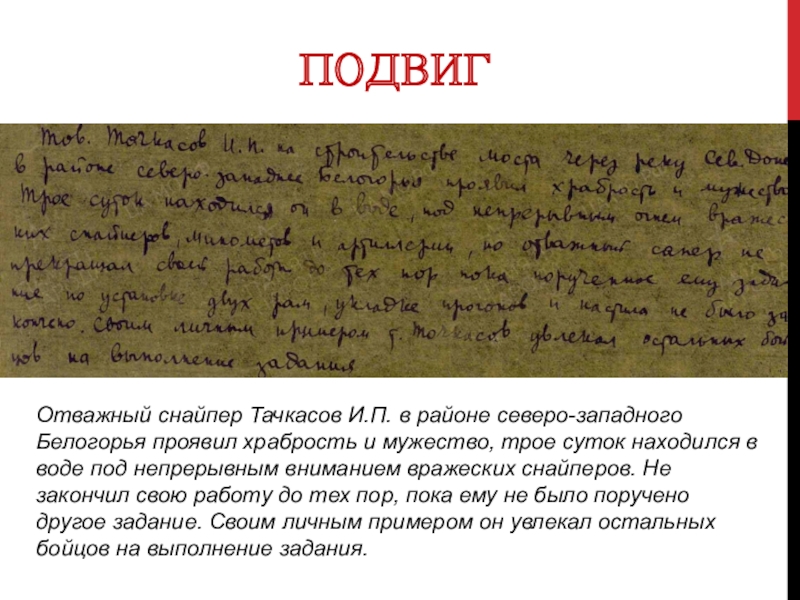 ПОДВИГ
Тов. Точкасов И.П. на строительстве моста через реку Сев. Доне
в районе северо-западнее Белогорья проявил храбрость и мужество
Трое суток находился он в воде, под непрерывным огнем вражес
ких снайперов, минометов и артиллерии, но отважный сапер не
прекращал своей работы до тех пор пока порученное ему зада
ние по установке двух рам, укладке прогонов и настила не было за
кончено. Своим личным примером т. Точкасов увлекал остальных бой
цов на выполнение задания
Отважный снайпер Тачкасов И.П. в районе северо-западного
Белогорья проявил храбрость и мужество, трое суток находился в
воде под непрерывным вниманием вражеских снайперов. Не
закончил свою работу до тех пор, пока ему не было поручено
другое задание. Своим личным примером он увлекал остальных
бойцов на выполнение задания.